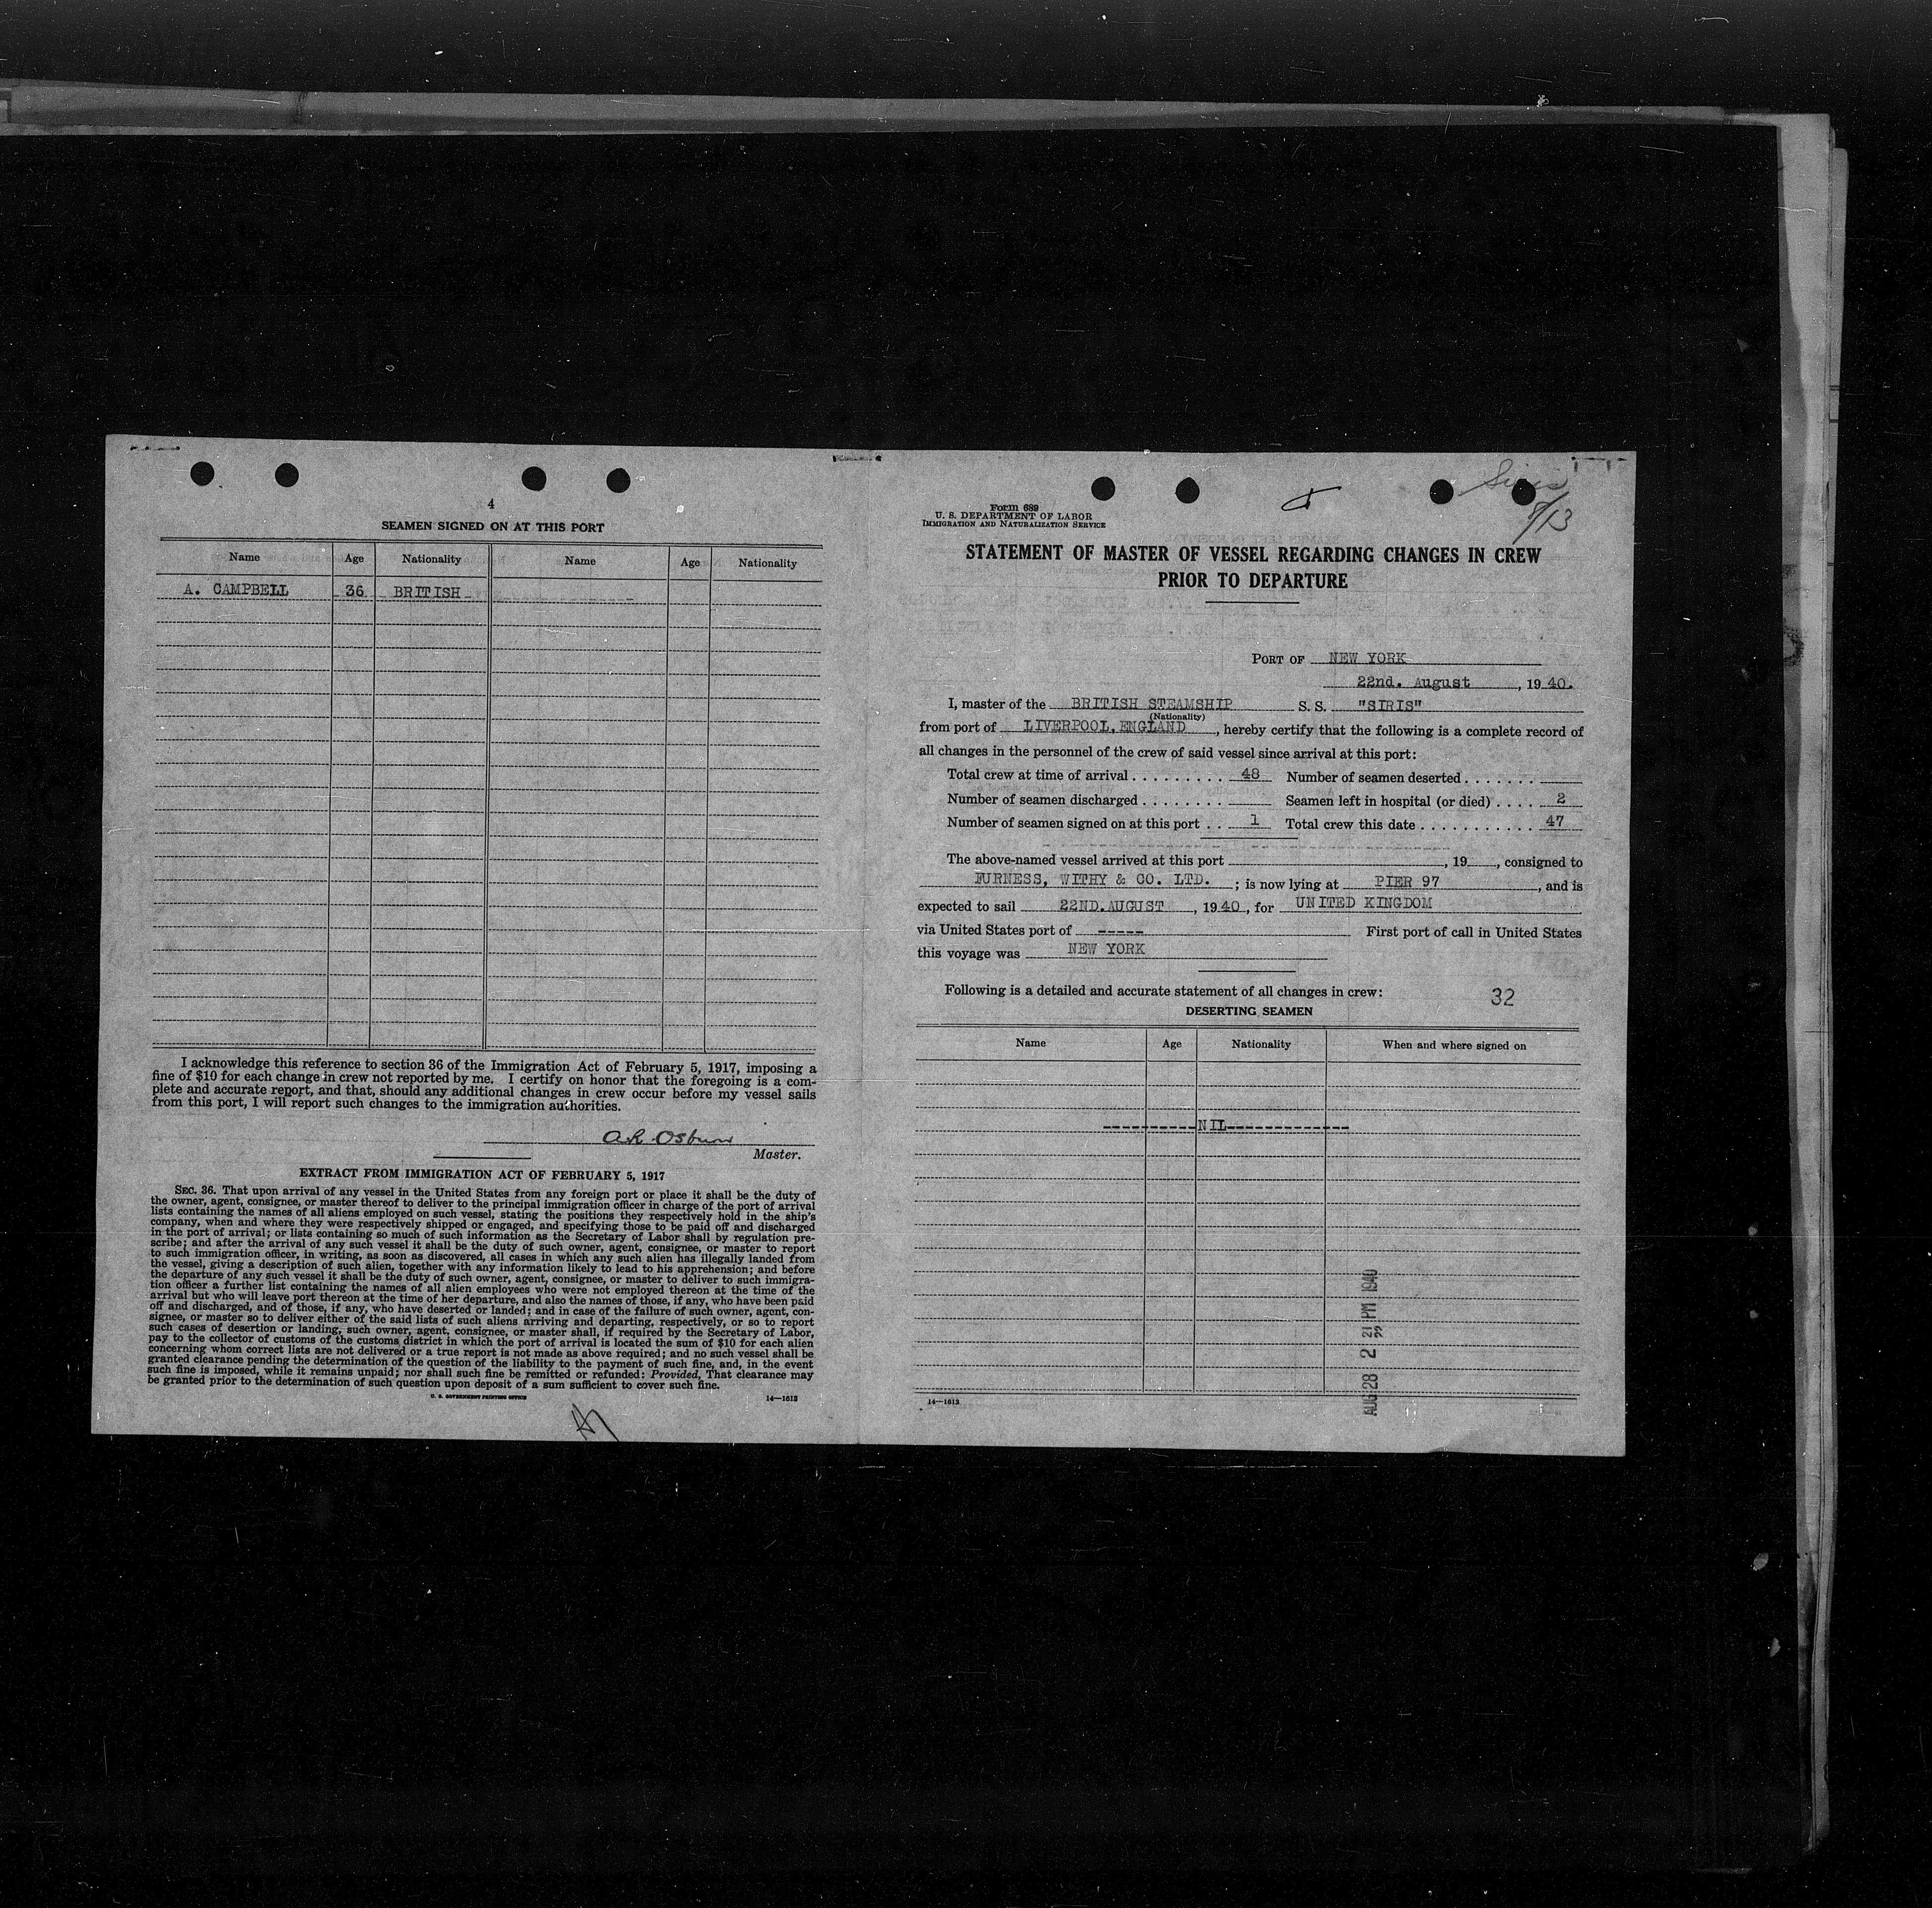 4
SEAMEN SIGNED ON AT THIS PORT
Name Age Nationality Name Age Nationality
A. CAMPBELL 36 BRITISH
I acknowledge this reference to section 36 of the Immigration Act of February 5, 1917, imposing a
fine of $10 for each change in crew not reported by me. I certify on honor that the foregoing is a com-
plete and accurate report, and that, should any additional changes in crew occur before my vessel sails
from this port, I will report such changes to the immigration authorities.
Master.
EXTRACT FROM IMMIGRATION ACT OF FEBRUARY 5, 1917
SEC. 36. That upon arrival of any vessel in the United States from any foreign port or place it shall be the duty of
the owner, agent, consignee, or master thereof to deliver to the principal immigration officer in charge of the port of arrival
lists containing the names of all aliens employed on such vessel, stating the positions they respectively hold in the ship's
company, when and where they were respectively shipped or engaged, and specifying those to be paid off and discharged
in the port of arrival; or lists containing so much of such information as the Secretary of Labor shall by regulation pre-
scribe; and after the arrival of any such vessel it shall be the duty of such owner, agent, consignee, or master to report
to such immigration officer, in writing, as soon as discovered, all cases in which any such alien has illegally landed from
the vessel, giving a description of such alien, together with any information likely to lead to his apprehension; and before
the departure of any such vessel it shall be the duty of such owner, agent, consignee, or master to deliver to such immigra-
tion officer a further list containing the names of all alien employees who were not employed thereon at the time of the
arrival but who will leave port thereon at the time of her departure, and also the names of those, if any, who have been paid
off and discharged, and of those, if any, who have deserted or landed; and in case of the failure of such owner, agent, con-
signee, or master so to deliver either of the said lists of such aliens arriving and departing, respectively, or so to report
such cases of desertion or landing, such owner, agent, consignee, or master shall, if required by the Secretary of Labor,
pay to the collector of customs of the customs district in which the port of arrival is located the sum of $10 for each alien
concerning whom correct lists are not delivered or a true report is not made as above required; and no such vessel shall be
granted clearance pending the determination of the question of the liability to the payment of such fine, and, in the event
such fine is imposed, while it remains unpaid; nor shall such fine be remitted or refunded: Provided, That clearance may
be granted prior to the determination of such question upon deposit of a sum sufficient to cover such fine.
U. S. GOVERNMENT PRINTING OFFICE 14—1613
Siris
8/13
Form 689
U. S. DEPARTMENT OF LABOR
IMMIGRATION AND NATURALIZATION SERVICE
STATEMENT OF MASTER OF VESSEL REGARDING CHANGES IN CREW
PRIOR TO DEPARTURE
PORT OF NEW YORK
22nd. August, 19 40.
I, master of the BRITISH STEAMSHIP S. S. "SIRIS"
(Nationality)
from port of LIVERPOOL, ENGLAND, hereby certify that the following is a complete record of
all changes in the personnel of the crew of said vessel since arrival at this port:
Total crew at time of arrival . . . . . . . . . 48 Number of seamen deserted . . . . . . .
Number of seamen discharged . . . . . . . . Seamen left in hospital (or died) . . . . 2
Number of seamen signed on at this port . . 1 Total crew this date . . . . . . . . . . . 47
The above-named vessel arrived at this port , 19 , consigned to
FURNESS, WITHY & CO. LTD. ; is now lying at PIER 97 , and is
expected to sail 22ND.AUGUST , 19 40, for UNITED KINGDOM
via United States port of ----- First port of call in United States
this voyage was NEW YORK
Following is a detailed and accurate statement of all changes in crew: 32
DESERTING SEAMEN
Name Age Nationality When and where signed on
----------NIL-------------
AUG 28 2 21 PM 1940
14—1613